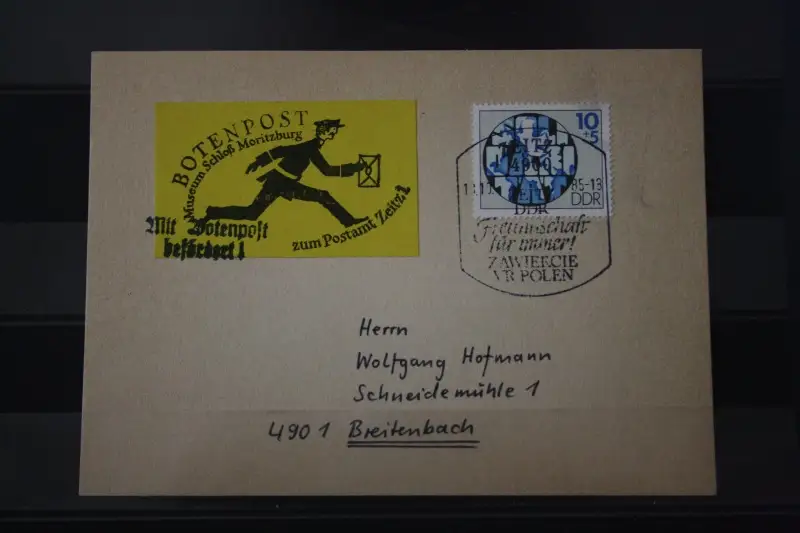 BOTENPOST
Museum Schloß Moritzburg
zum Postamt Zeitz 1
Mit Botenpost
befördert!
10
+5
ZEITZ
4900
85-13
DDR
DDR
Freundschaft
für immer!
ZAWIERCIE
VR POLEN
Herrn
Wolfgang Hofmann
Schneidemühle 1
4901 Breitenbach